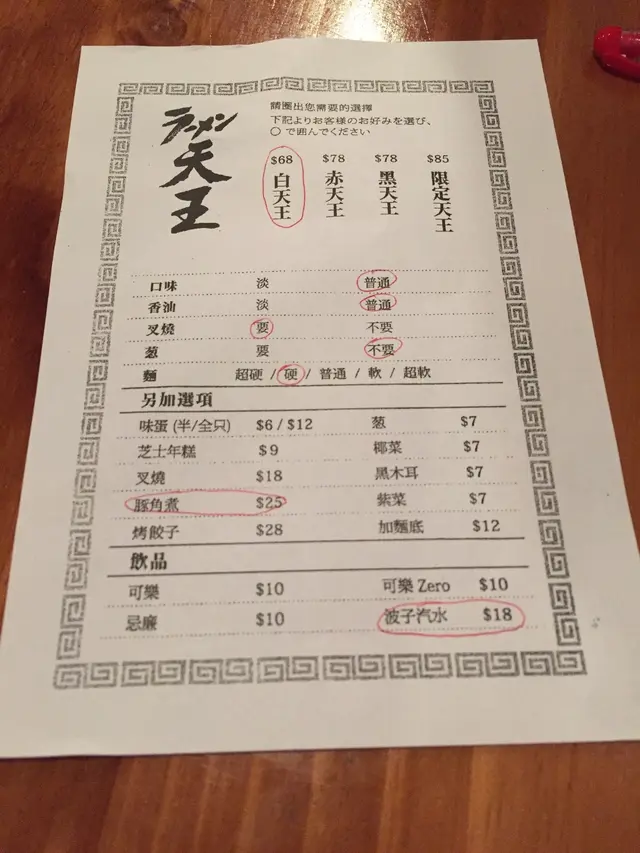 ラーメン天王
請圈出您需要的選擇
下記よりお客様のお好みを選び、
○で囲んでください
$68 $78 $78 $85
白天王 赤天王 黑天王 限定天王
口味 淡 普通
香油 淡 普通
叉燒 要 不要
葱 要 不要
麵 超硬 / 硬 / 普通 / 軟 / 超軟
另加選項
味蛋 (半/全只) $6 / $12 葱 $7
芝士年糕 $9 椰菜 $7
叉燒 $18 黑木耳 $7
豚角煮 $25 紫菜 $7
烤餃子 $28 加麵底 $12
飲品
可樂 $10 可樂 Zero $10
忌廉 $10 波子汽水 $18